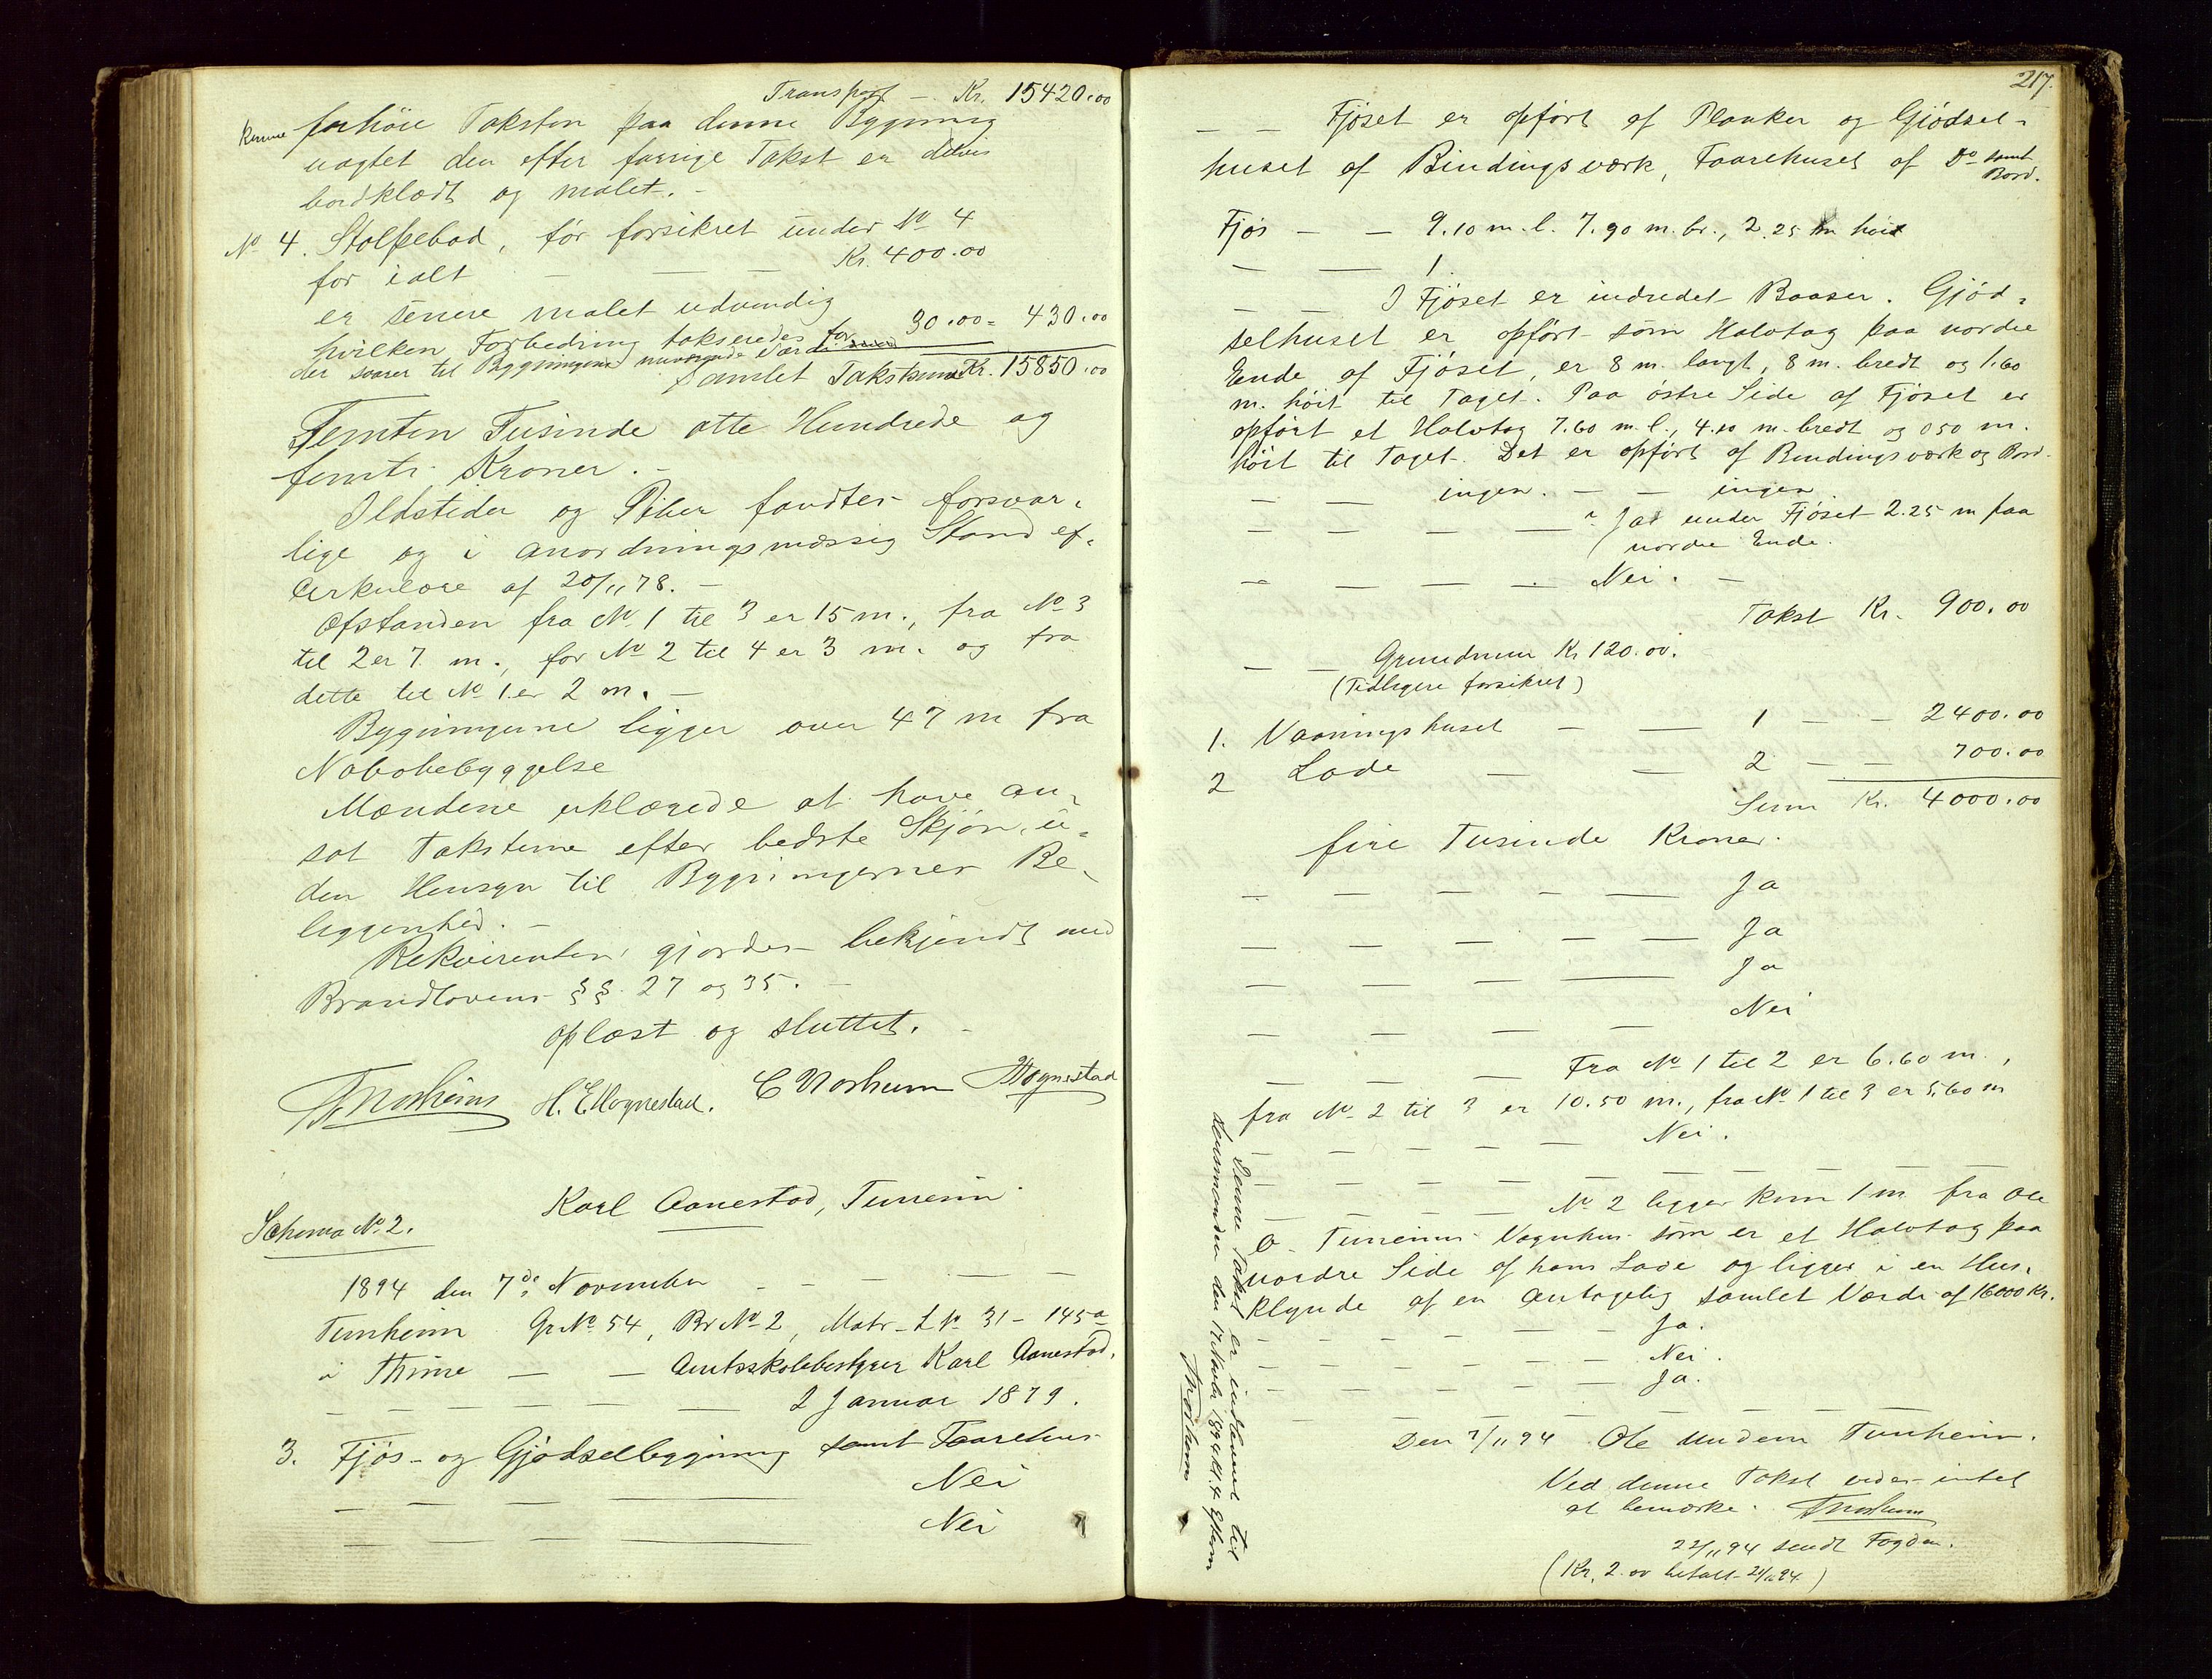 Transport — Kr. 15420.00
kunne forhöie Taksten paa denne Bygning
uagtet den efter forrige Takst er delvis
bordklædt og malet. —
No 4. Stolpebod, før forsikret under No 4
for ialt — — — Kr. 400.00
er senere malet udvendig
hvilken Forbedring takseredes for 30.00 = 430.00
der svarer til Bygningens nuværende Værdi
Samlet Takstsum Kr. 15850.00
Femten Tusinde otte Hundrede og
femti Kroner. —
Ildsteder og Piber fandtes forsvar-
lige og i anordningsmæssig Stand ef.
Cirkulære af 20/11 78. —
Afstanden fra No 1 til 3 er 15 m., fra No 3
til 2 er 7 m., for No 2 til 4 er 3 m. og fra
dette til No 1 er 2 m. —
Bygningerne ligger over 47 m fra
Nabobebyggelse
Mændene erklærede at have an-
sat Taksterne efter bedste Skjøn, u-
den Hensyn til Bygningernes Be-
liggenhed. —
Rekvirenten gjordes bekjendt med
Brandlovens §§ 27 og 35. —
oplæst og sluttet. —
H. E. Hognestad. C Norheim Hognestad
Karl Aanestad, Tunheim
Schema No 2.
1894 den 7de November — — — —
Tunheim Gr No 54, Br No 2, Matr. L No 31 - 145a
i Thime — — Amtsskolebestyrer Karl Aanestad.
— — — — — — 2 Januar 1879.
3. Fjøs- og Gjødselbygning samt Faarehus
— — — — Nei
— — — Nei
217.
— — Fjøset er opført af Planker og Gjødsel-
huset af Bindingsværk, Faarehuset af Do samt
Bord.
Fjøs — — 9.10 m. l. 7.90 m. br., 2.25 m høit
— — 1
— — I Fjøset er indredet Baaser. Gjød-
selhuset er opført som Halvtag paa nordre
Ende af Fjøset, er 8 m. langt, 8 m. bredt og 1.60
m. høit til Taget. Paa østre Side af Fjøset er
opført et Halvtag 7.60 m. l., 4.10 m. bredt og 0.50 m.
høit til Taget. Det er opført af Bindingsværk og Bord.
— — ingen. — — ingen
— — — — Ja under Fjøset 2.25 m paa
nordre Ende.
— — — — Nei. —
Takst Kr. 900.00
— — Grundmur Kr 120.00.
(Tidligere forsikret)
1. Vaaningshuset — — 1 — — 2400.00
2 Lade — — 2 — — 700.00
Sum Kr. 4000.00
fire Tusinde Kroner.
— — — — — Ja
— — — — — Ja
— — — — Ja
— — — — Nei
— — — Fra No 1 til 2 er 6.60 m.,
fra No 2 til 3 er 10.50 m., fra No 1 til 3 er 5.60 m
— — — — — Nei.
— — — — — — — — —
— — — — No 2 ligger kun 1 m fra Ole
O. Tunheims Vognhus som er et Halvtag paa
nordre Side af hans Lade og ligger i en Hus-
klynde af en antagelig samlet Værdi af 16000 Kr.
— — — — — — Ja.
— — — — — — Nei.
— — — — — — Ja.
— — — — — — — —
Den 7/11 94 Ole Undem Tunheim.
Ved denne Takst vides intet
at bemærke.
22/11 94 sendt Fogden.
(Kr. 2.00 betalt 21/11 94)
Denne Takst er indkommet til
Lensmanden den 17 Novbr 1894 kl. 4 Efterm